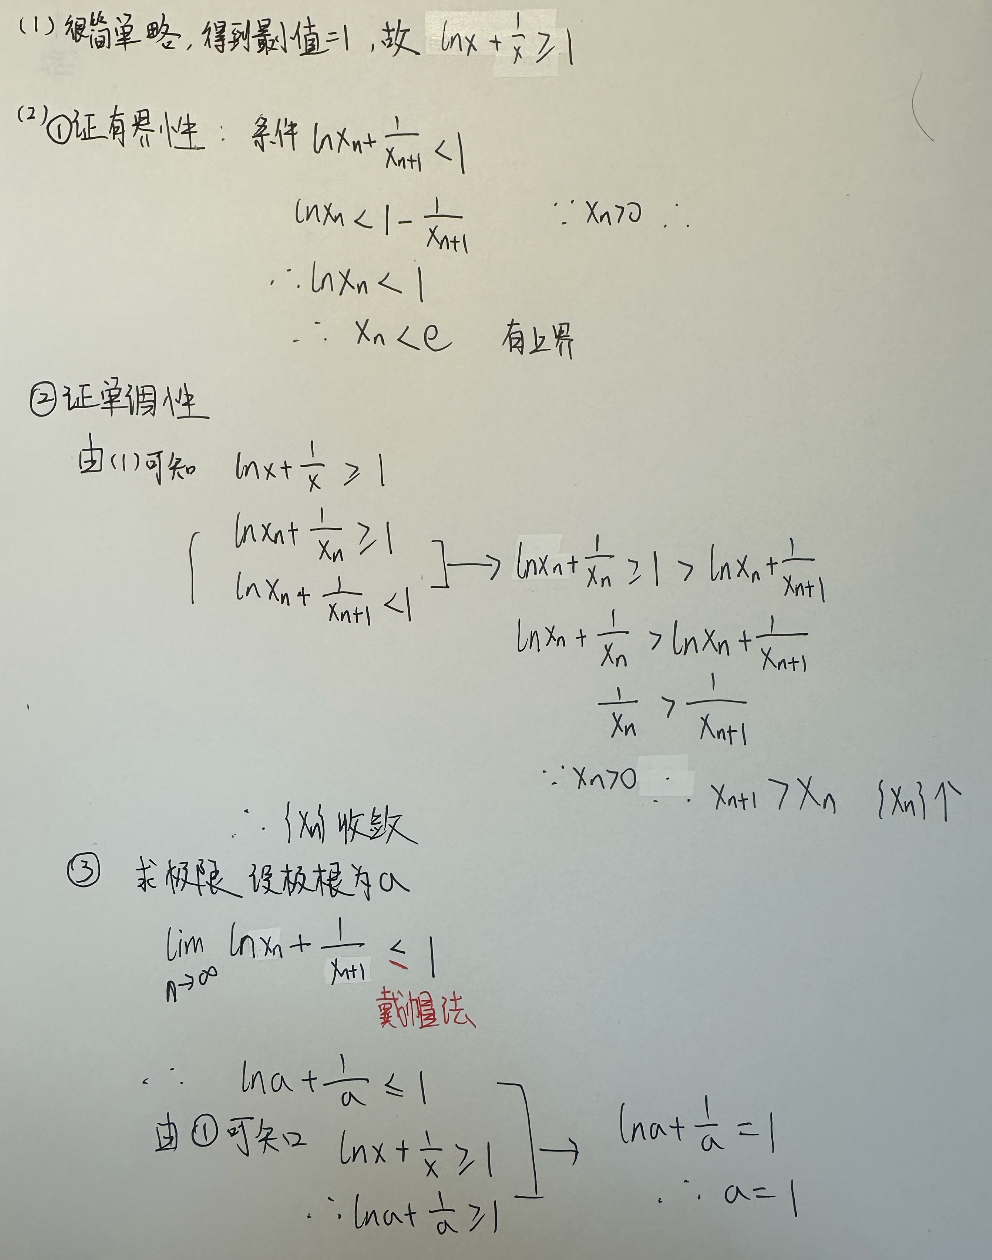 (1) 很简单略, 得到最小值=1, 故 lnx + 1/x ≥ 1
(2) ①证有界性: 条件 lnxn + 1/xn+1 < 1
lnxn < 1 - 1/xn+1 ∵ xn>0 ∴
∴ lnxn < 1
∴ xn < e 有上界
②证单调性
由(1)可知 lnx + 1/x ≥ 1
lnxn + 1/xn ≥ 1
lnxn + 1/xn+1 < 1 → lnxn + 1/xn ≥ 1 > lnxn + 1/xn+1
lnxn + 1/xn > lnxn + 1/xn+1
1/xn > 1/xn+1
∵ xn>0 ∴ xn+1 > xn {xn}个
∴ {xn} 收敛
③ 求极限 设极根为a
lim n→∞ lnxn + 1/xn+1 ≤ 1
戴帽法
∴ lna + 1/a ≤ 1
由①可知 lnx + 1/x ≥ 1 → lna + 1/a = 1
∴ lna + 1/a ≥ 1 ∴ a = 1